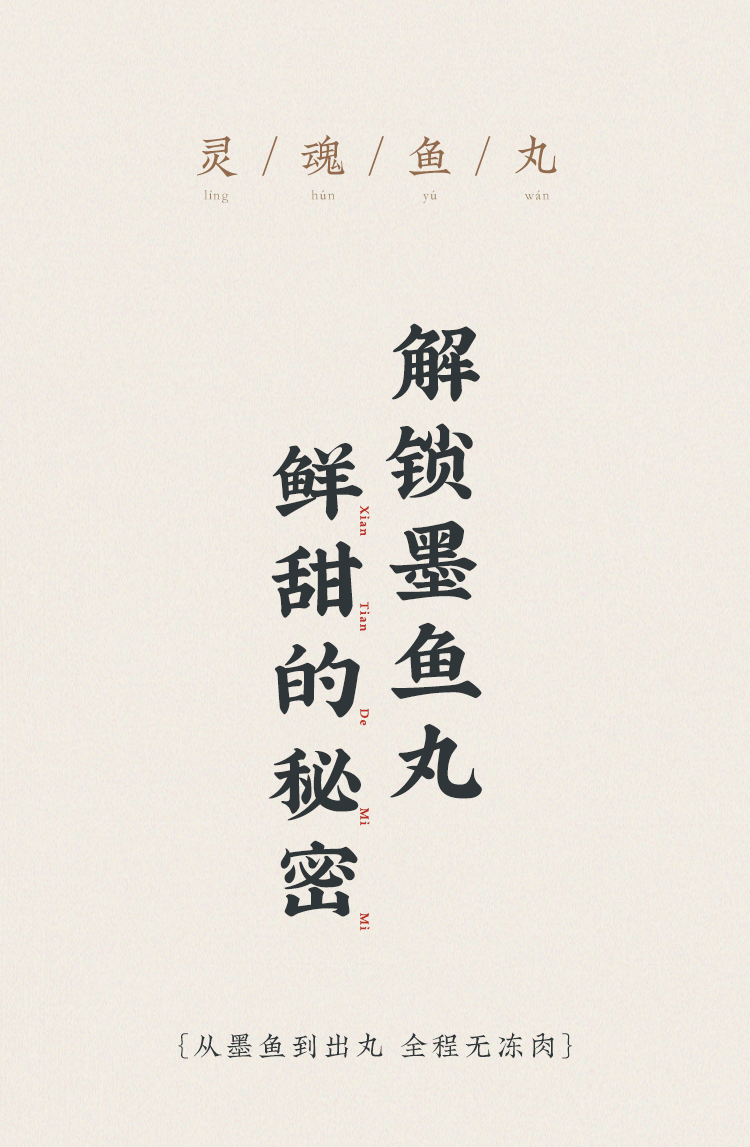 灵/魂/鱼/丸
líng hún yú wán
解锁墨鱼丸
鲜甜的秘密
Xian Tian De Mi Mi
{从墨鱼到出丸 全程无冻肉}